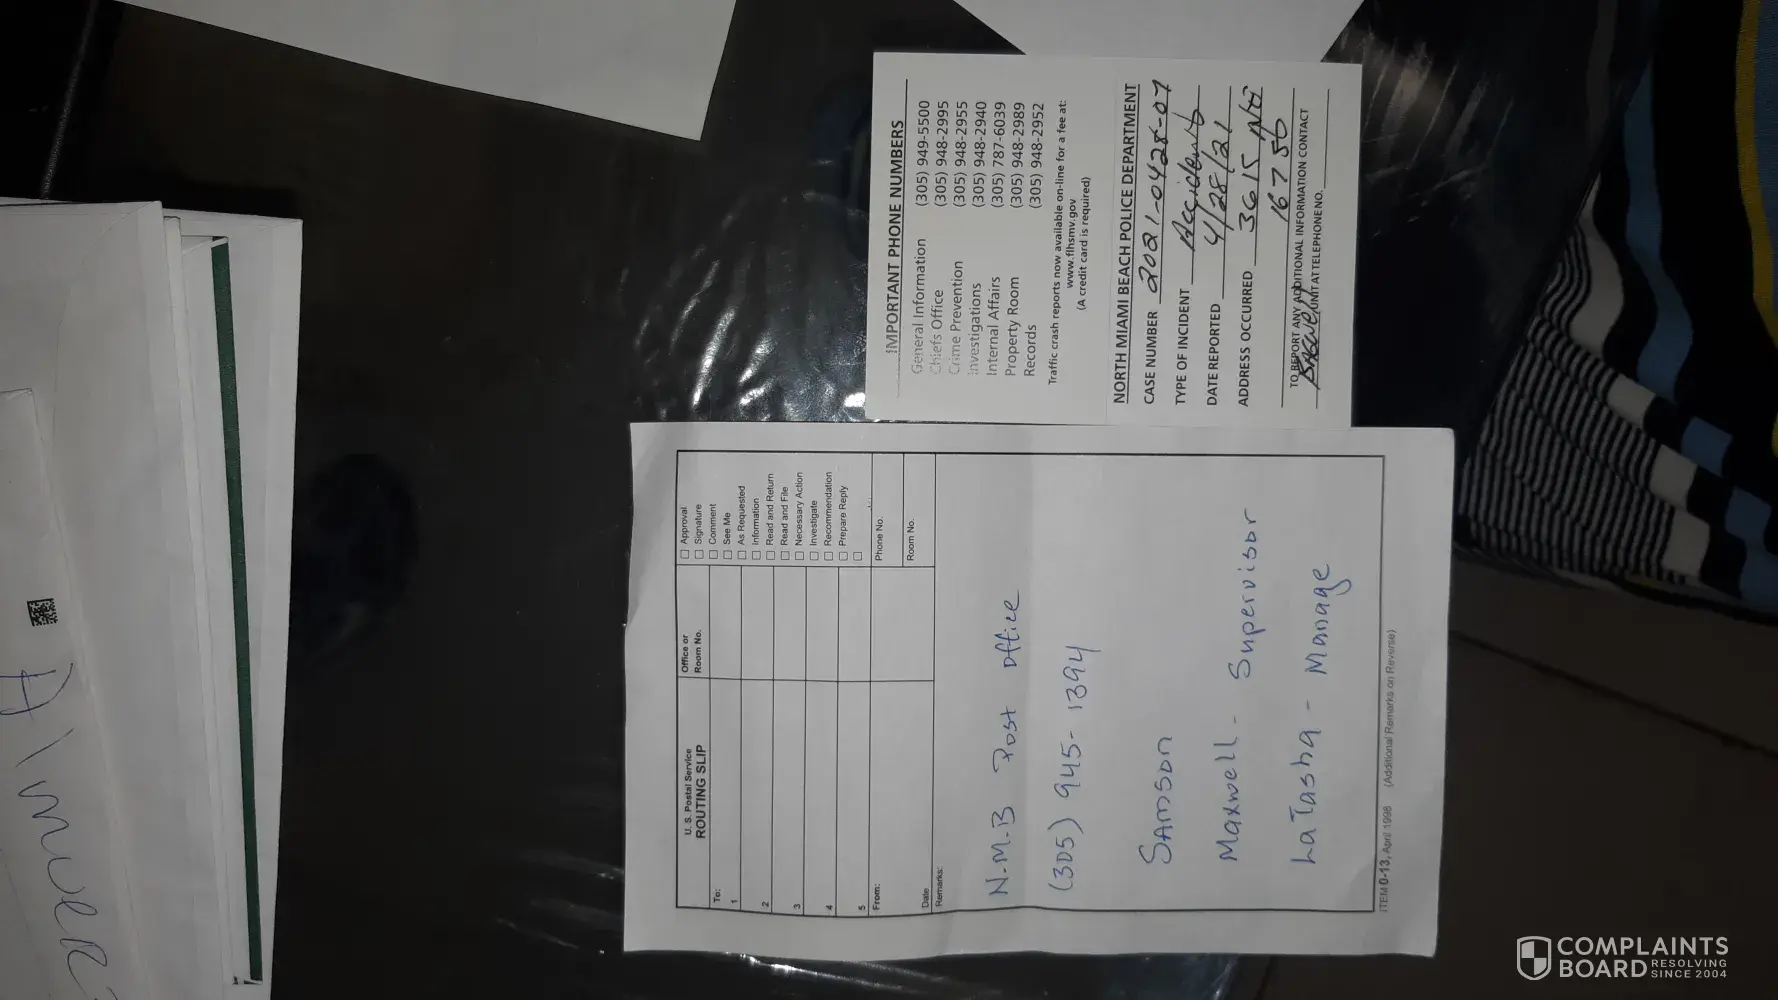 IMPORTANT PHONE NUMBERS
General Information (305) 949-5500
Chiefs Office (305) 948-2995
Crime Prevention (305) 948-2955
Investigations (305) 948-2940
Internal Affairs (305) 787-6039
Property Room (305) 948-2989
Records (305) 948-2952
Traffic crash reports now available on-line for a fee at:
www.flhsmv.gov
(A credit card is required)
NORTH MIAMI BEACH POLICE DEPARTMENT
CASE NUMBER 2021-0428-07
TYPE OF INCIDENT Accident
DATE REPORTED 4/28/21
ADDRESS OCCURRED 3615
167 St
TO REPORT ANY ADDITIONAL INFORMATION CONTACT
UNIT AT TELEPHONE NO.
U. S. Postal Service
ROUTING SLIP
Office or
Room No.
Approval
Signature
Comment
See Me
As Requested
Information
Read and Return
Read and File
Necessary Action
Investigate
Recommendation
Prepare Reply
To:
1
2
3
4
5
From:
Phone No.
Date
Room No.
Remarks:
N.M.B Post Office
(305) 945-1394
Samson
Maxwell - Supervisor
LaTasha - Manage
ITEM 0-13, April 1998 (Additional Remarks on Reverse)
COMPLAINTS
BOARD RESOLVING
SINCE 2004